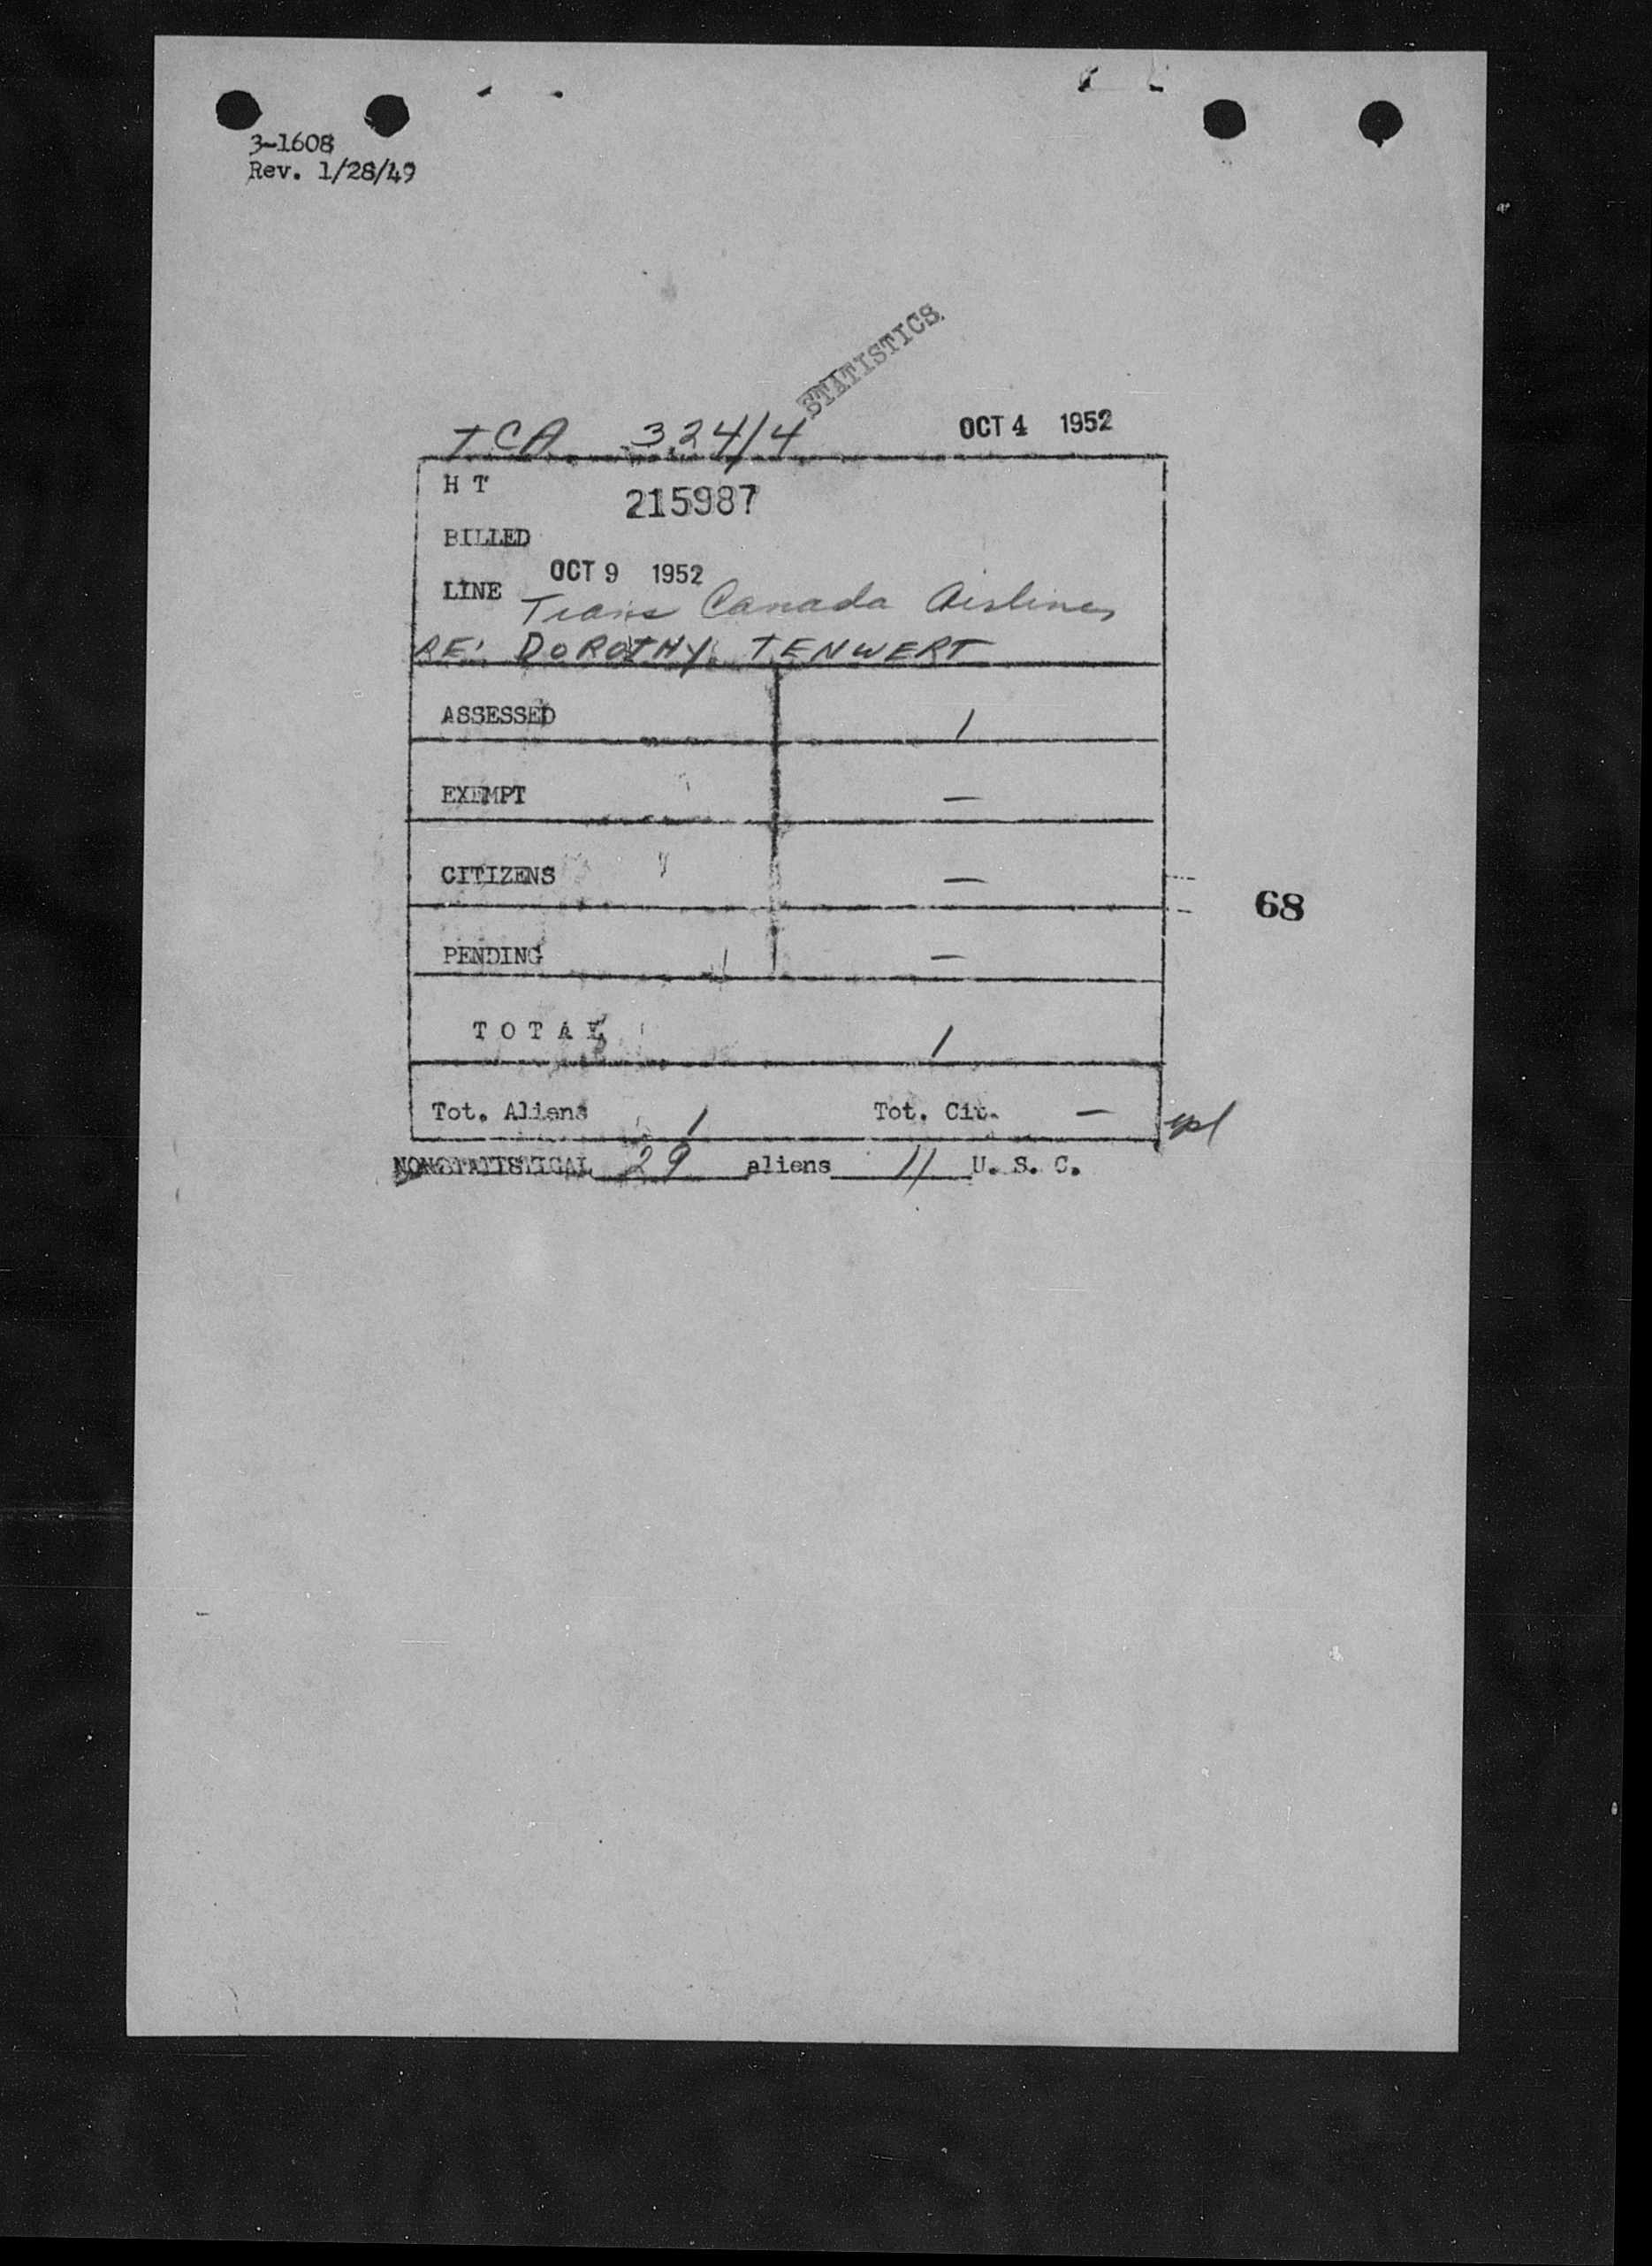 3-1608
Rev. 1/28/49
STATISTICS
TCA 324/4 OCT 4 1952
H T 215987
BILLED
OCT 9 1952
LINE Trans Canada Airlines
RE: DOROTHY TENWERT
ASSESSED 1
EXEMPT —
CITIZENS —
68
PENDING —
TOTAL 1
Tot. Aliens 1 Tot. Cit. —
NONSTATISTICAL 29 aliens 11 U. S. C.